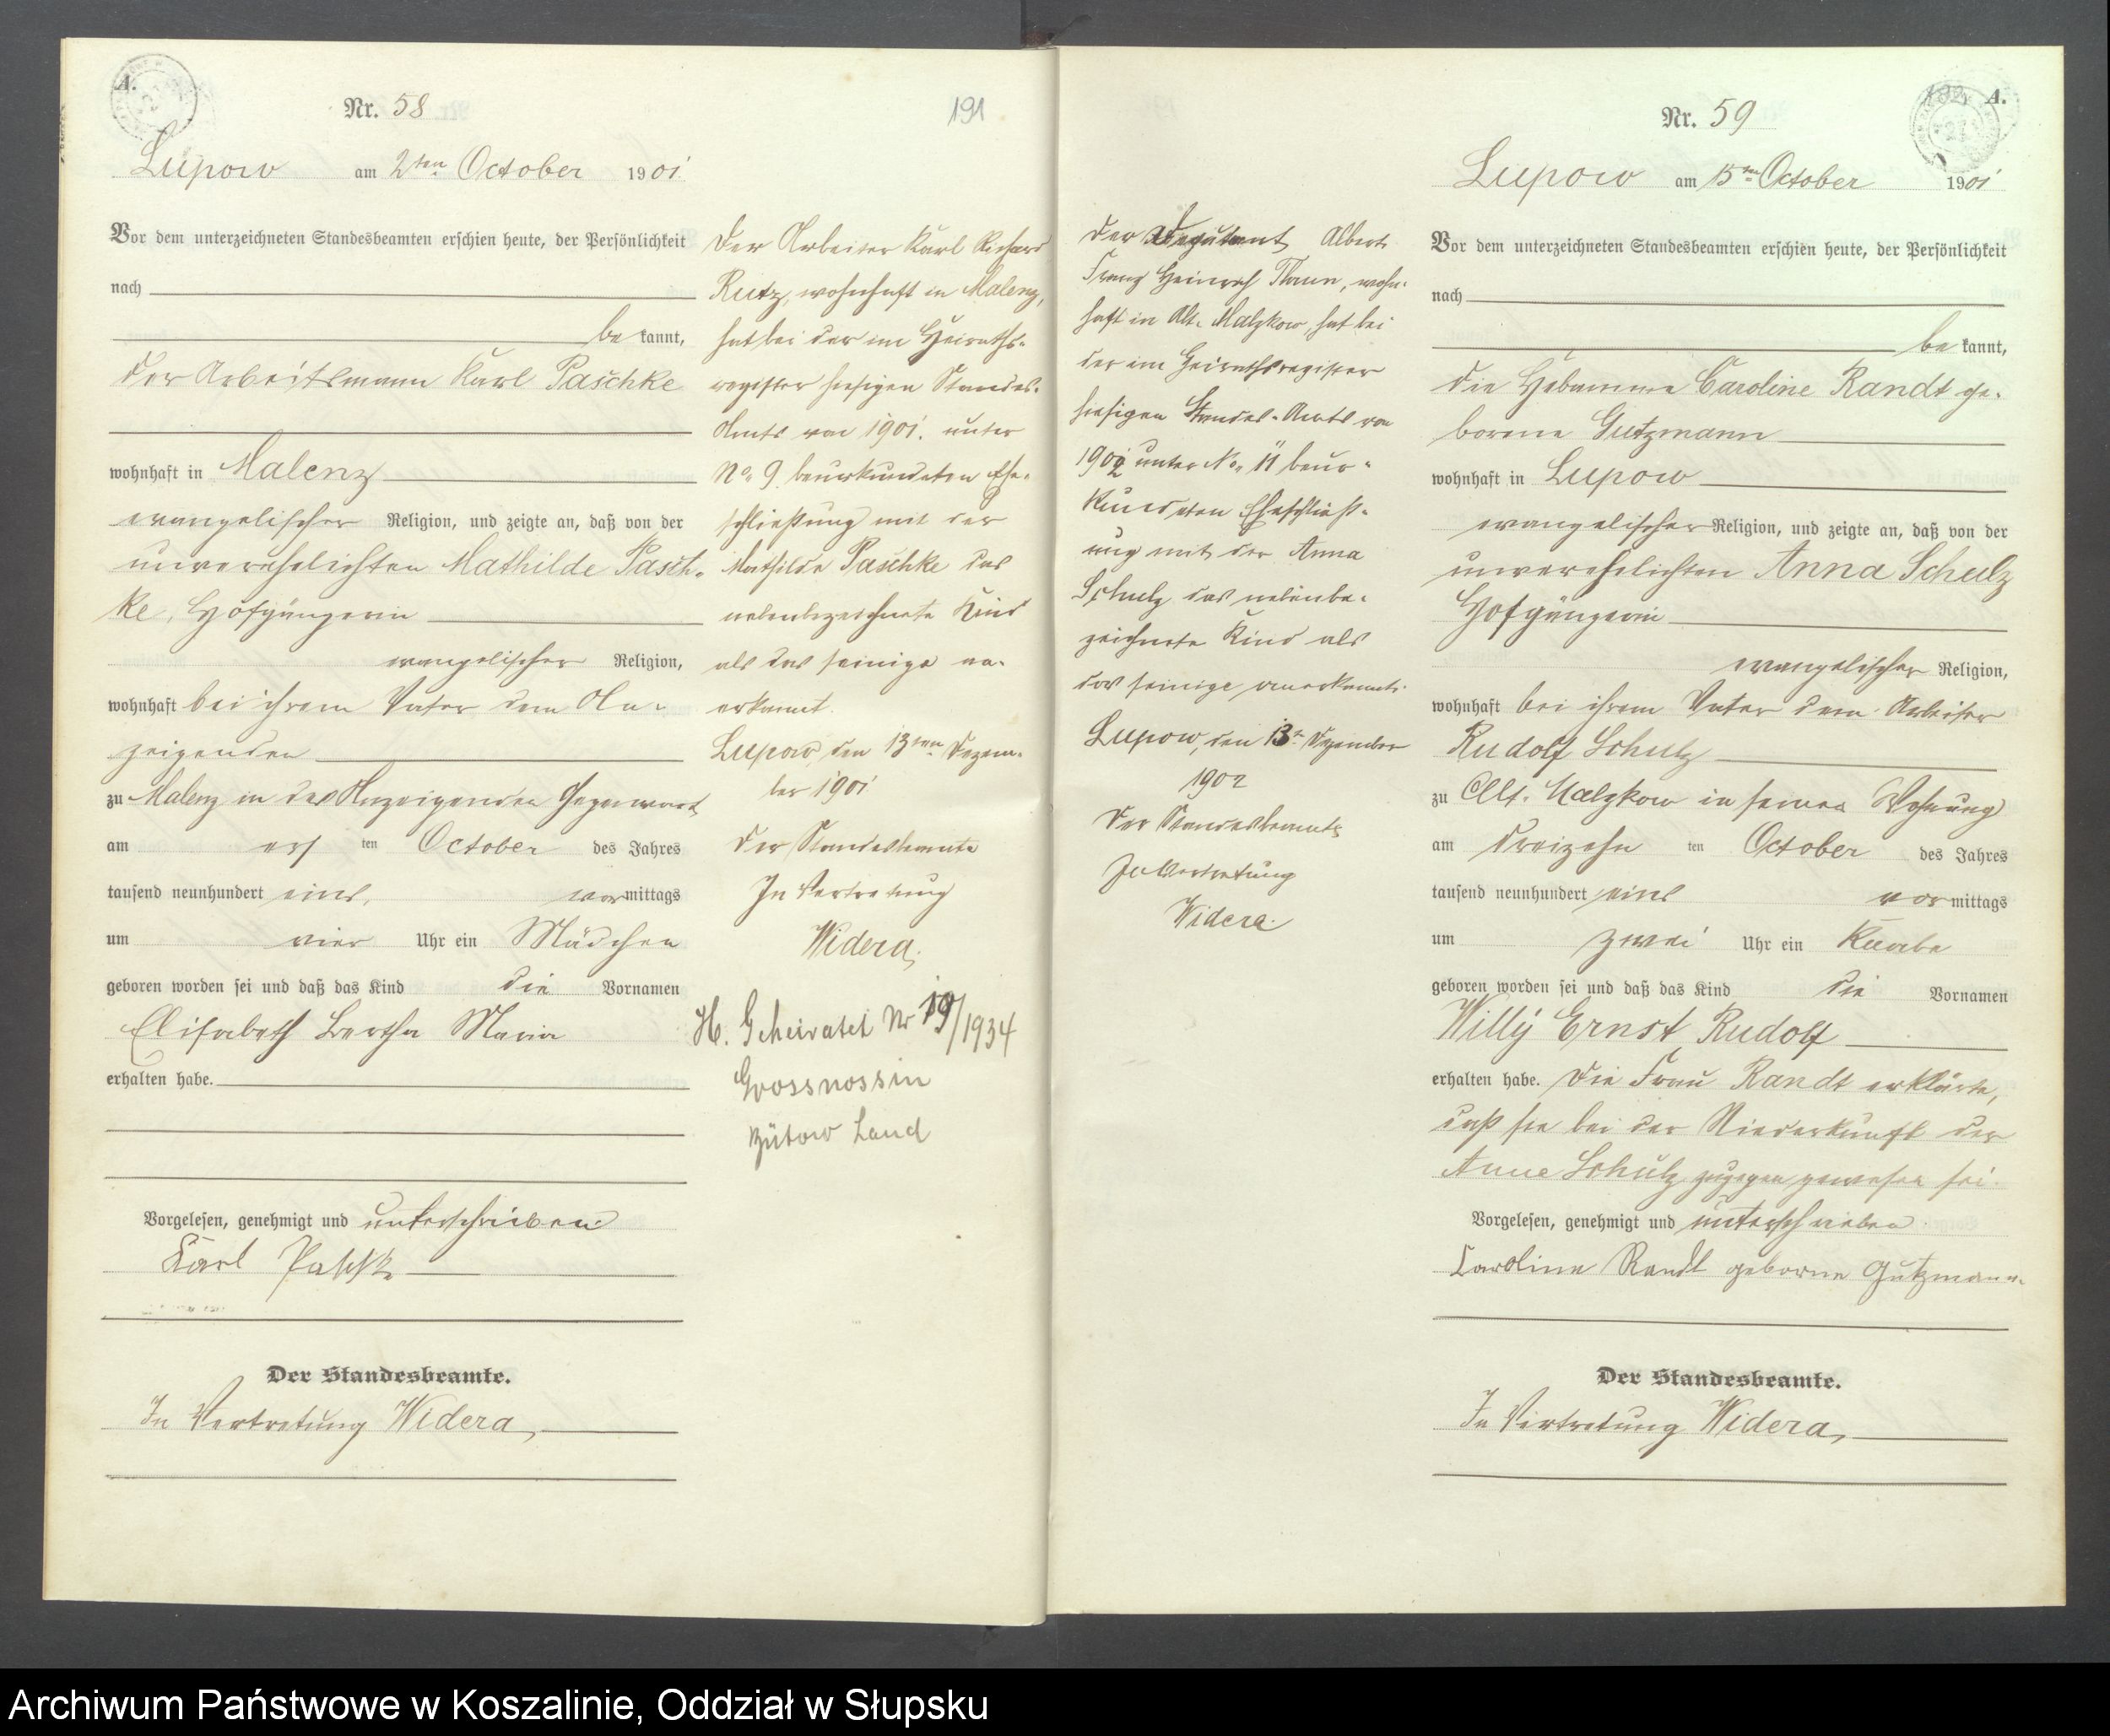 A.
Nr. 58
191
Lupow am 2ten October 1901
Vor dem unterzeichneten Standesbeamten erschien heute, der Persönlichkeit
nach
be kannt,
der Arbeitsmann Karl Paschke
wohnhaft in Malenz
evangelischer Religion, und zeigte an, daß von der
unverehelichten Mathilde Pasch-
ke, Hofgängerin
evangelischer Religion,
wohnhaft bei ihrem Vater dem An-
zeigenden
zu Malenz in des Anzeigenden Gegenwart
am ersten October des Jahres
tausend neunhundert eins, vormittags
um vier Uhr ein Mädchen
geboren worden sei und daß das Kind die Vornamen
Elisabeth Bertha Maria
erhalten habe.
Vorgelesen, genehmigt und unterschrieben
Karl Paschke
Der Standesbeamte.
In Vertretung Widera,
Der Arbeiter Karl Richard
Rutz, wohnhaft in Malenz,
hat bei der im Heiraths-
register hiesigen Standes-
Amts von 1901. unter
No 9 beurkundeten Ehe-
schließung mit der
Mathilde Paschke das
nebenbezeichnete Kind
als das seinige an-
erkannt.
Lupow, den 13ten Dezem-
ber 1901
Der Standesbeamte
In Vertretung
Widera,
H. Geheiratet Nr 19/1934
Grossnossin
Bütow Land
Der Deputant Albert
Franz Heinrich Thaun, wohn-
haft in Alt-Malzkow, hat bei
der im Heirathsregister
hiesigen Standes-Amts von
1902 unter No 11 beur-
kundeten Eheschließ-
ung mit der Anna
Schulz das nebenbe-
zeichnete Kind als
das seinige anerkannt.
Lupow, den 13n Dezember
1902
Der Standesbeamte
In Vertretung
Widera.
A.
Nr. 59
Lupow am 15ten October 1901
Vor dem unterzeichneten Standesbeamten erschien heute, der Persönlichkeit
nach
be kannt,
die Hebamme Caroline Randt ge-
borene Gutzmann
wohnhaft in Lupow
evangelischer Religion, und zeigte an, daß von der
unverehelichten Anna Schulz
Hofgängerin
evangelischer Religion,
wohnhaft bei ihrem Vater dem Arbeiter
Rudolf Schulz
zu Alt-Malzkow in seiner Wohnung
am dreizehnten October des Jahres
tausend neunhundert eins vormittags
um zwei Uhr ein Knabe
geboren worden sei und daß das Kind die Vornamen
Willy Ernst Rudolf
erhalten habe. Die Frau Randt erklärte,
daß sie bei der Niederkunft der
Anna Schulz zugegen gewesen sei.
Vorgelesen, genehmigt und unterschrieben
Caroline Randt geborne Gutzmann.
Der Standesbeamte.
In Vertretung Widera,
Archiwum Państwowe w Koszalinie, Oddział w Słupsku